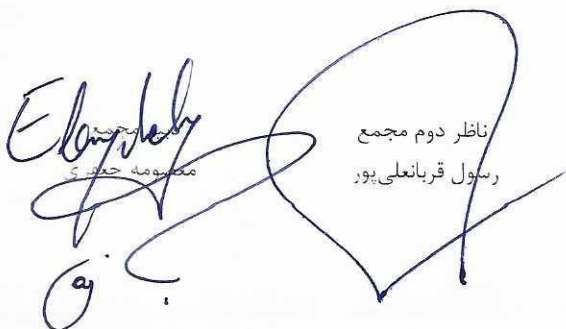 ناظر دوم مجمع
رسول قربانعلی‌پور
مجمع
معصومه جعفری